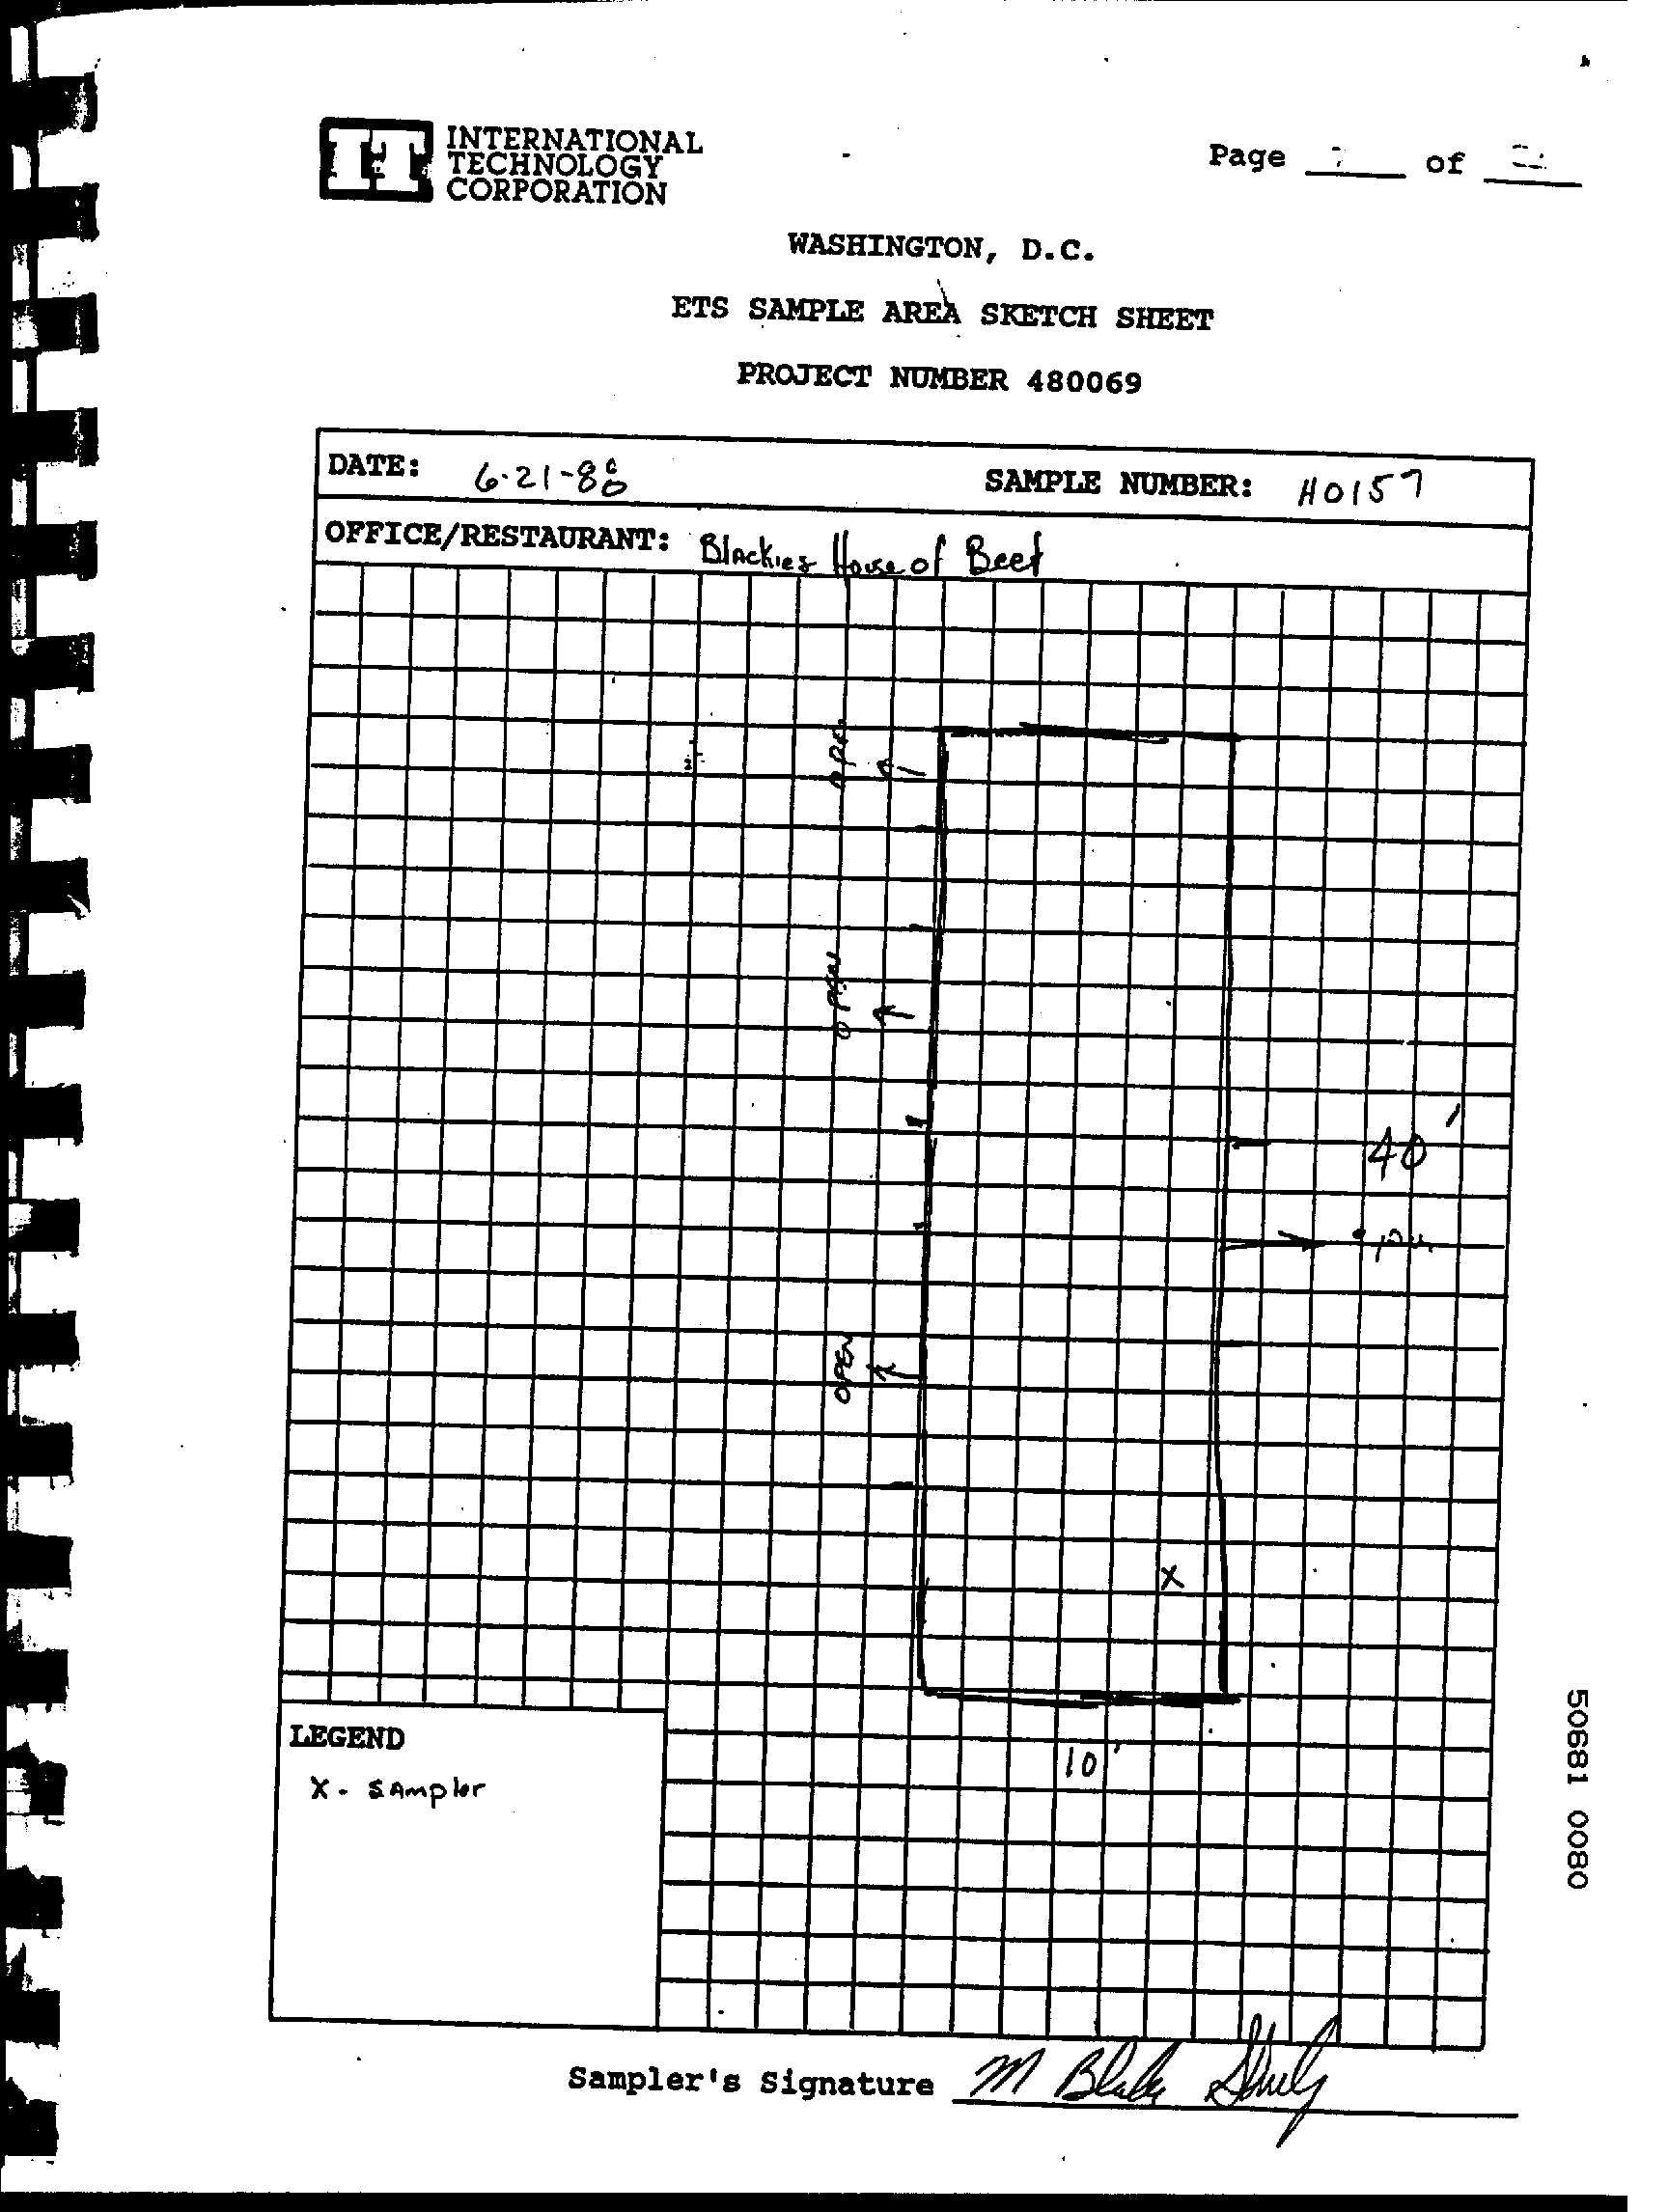 IT INTERNATIONAL
TECHNOLOGY
CORPORATION
Page of
WASHINGTON, D.C.
ETS SAMPLE AREA SKETCH SHEET
PROJECT NUMBER 480069
DATE: 6-21-88
SAMPLE NUMBER: H0157
OFFICE/RESTAURANT: Blackies House of Beef
OPEN
OPEN
40'
OPEN
10'
LEGEND
X - SAmpler
Sampler's Signature M Blake
50681 0080